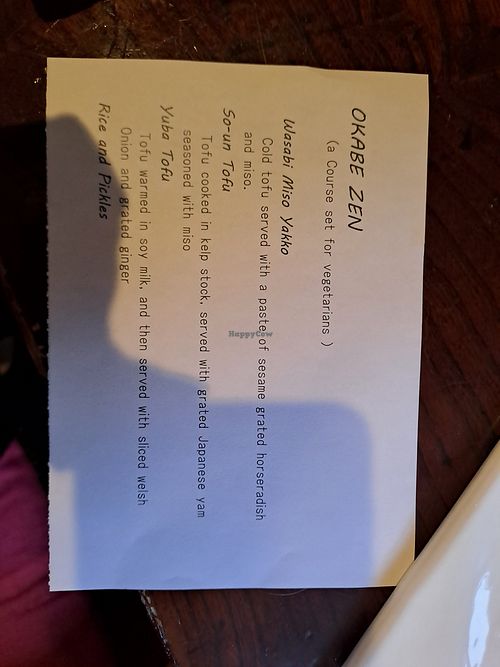 OKABE ZEN
(a Course set for vegetarians )
Wasabi Miso Yakko
Cold tofu served with a paste of sesame grated horseradish
and miso.
So-un Tofu
Tofu cooked in kelp stock, served with grated Japanese yam
seasoned with miso
Yuba Tofu
Tofu warmed in soy milk, and then served with sliced welsh
Onion and grated ginger
Rice and Pickles
HappyCow